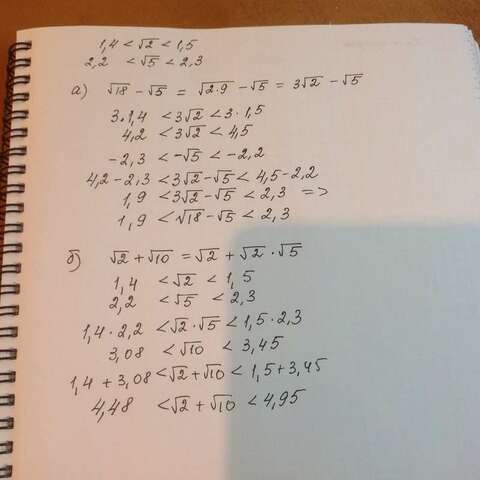 1,4 < √2 < 1,5
2,2 < √5 < 2,3
а) √18 − √5 = √2·9 − √5 = 3√2 − √5
3·1,4 < 3√2 < 3·1,5
4,2 < 3√2 < 4,5
−2,3 < −√5 < −2,2
4,2 − 2,3 < 3√2 − √5 < 4,5 − 2,2
1,9 < 3√2 − √5 < 2,3 =>
1,9 < √18 − √5 < 2,3
б) √2 + √10 = √2 + √2 · √5
1,4 < √2 < 1,5
2,2 < √5 < 2,3
1,4 · 2,2 < √2 · √5 < 1,5 · 2,3
3,08 < √10 < 3,45
1,4 + 3,08 < √2 + √10 < 1,5 + 3,45
4,48 < √2 + √10 < 4,95